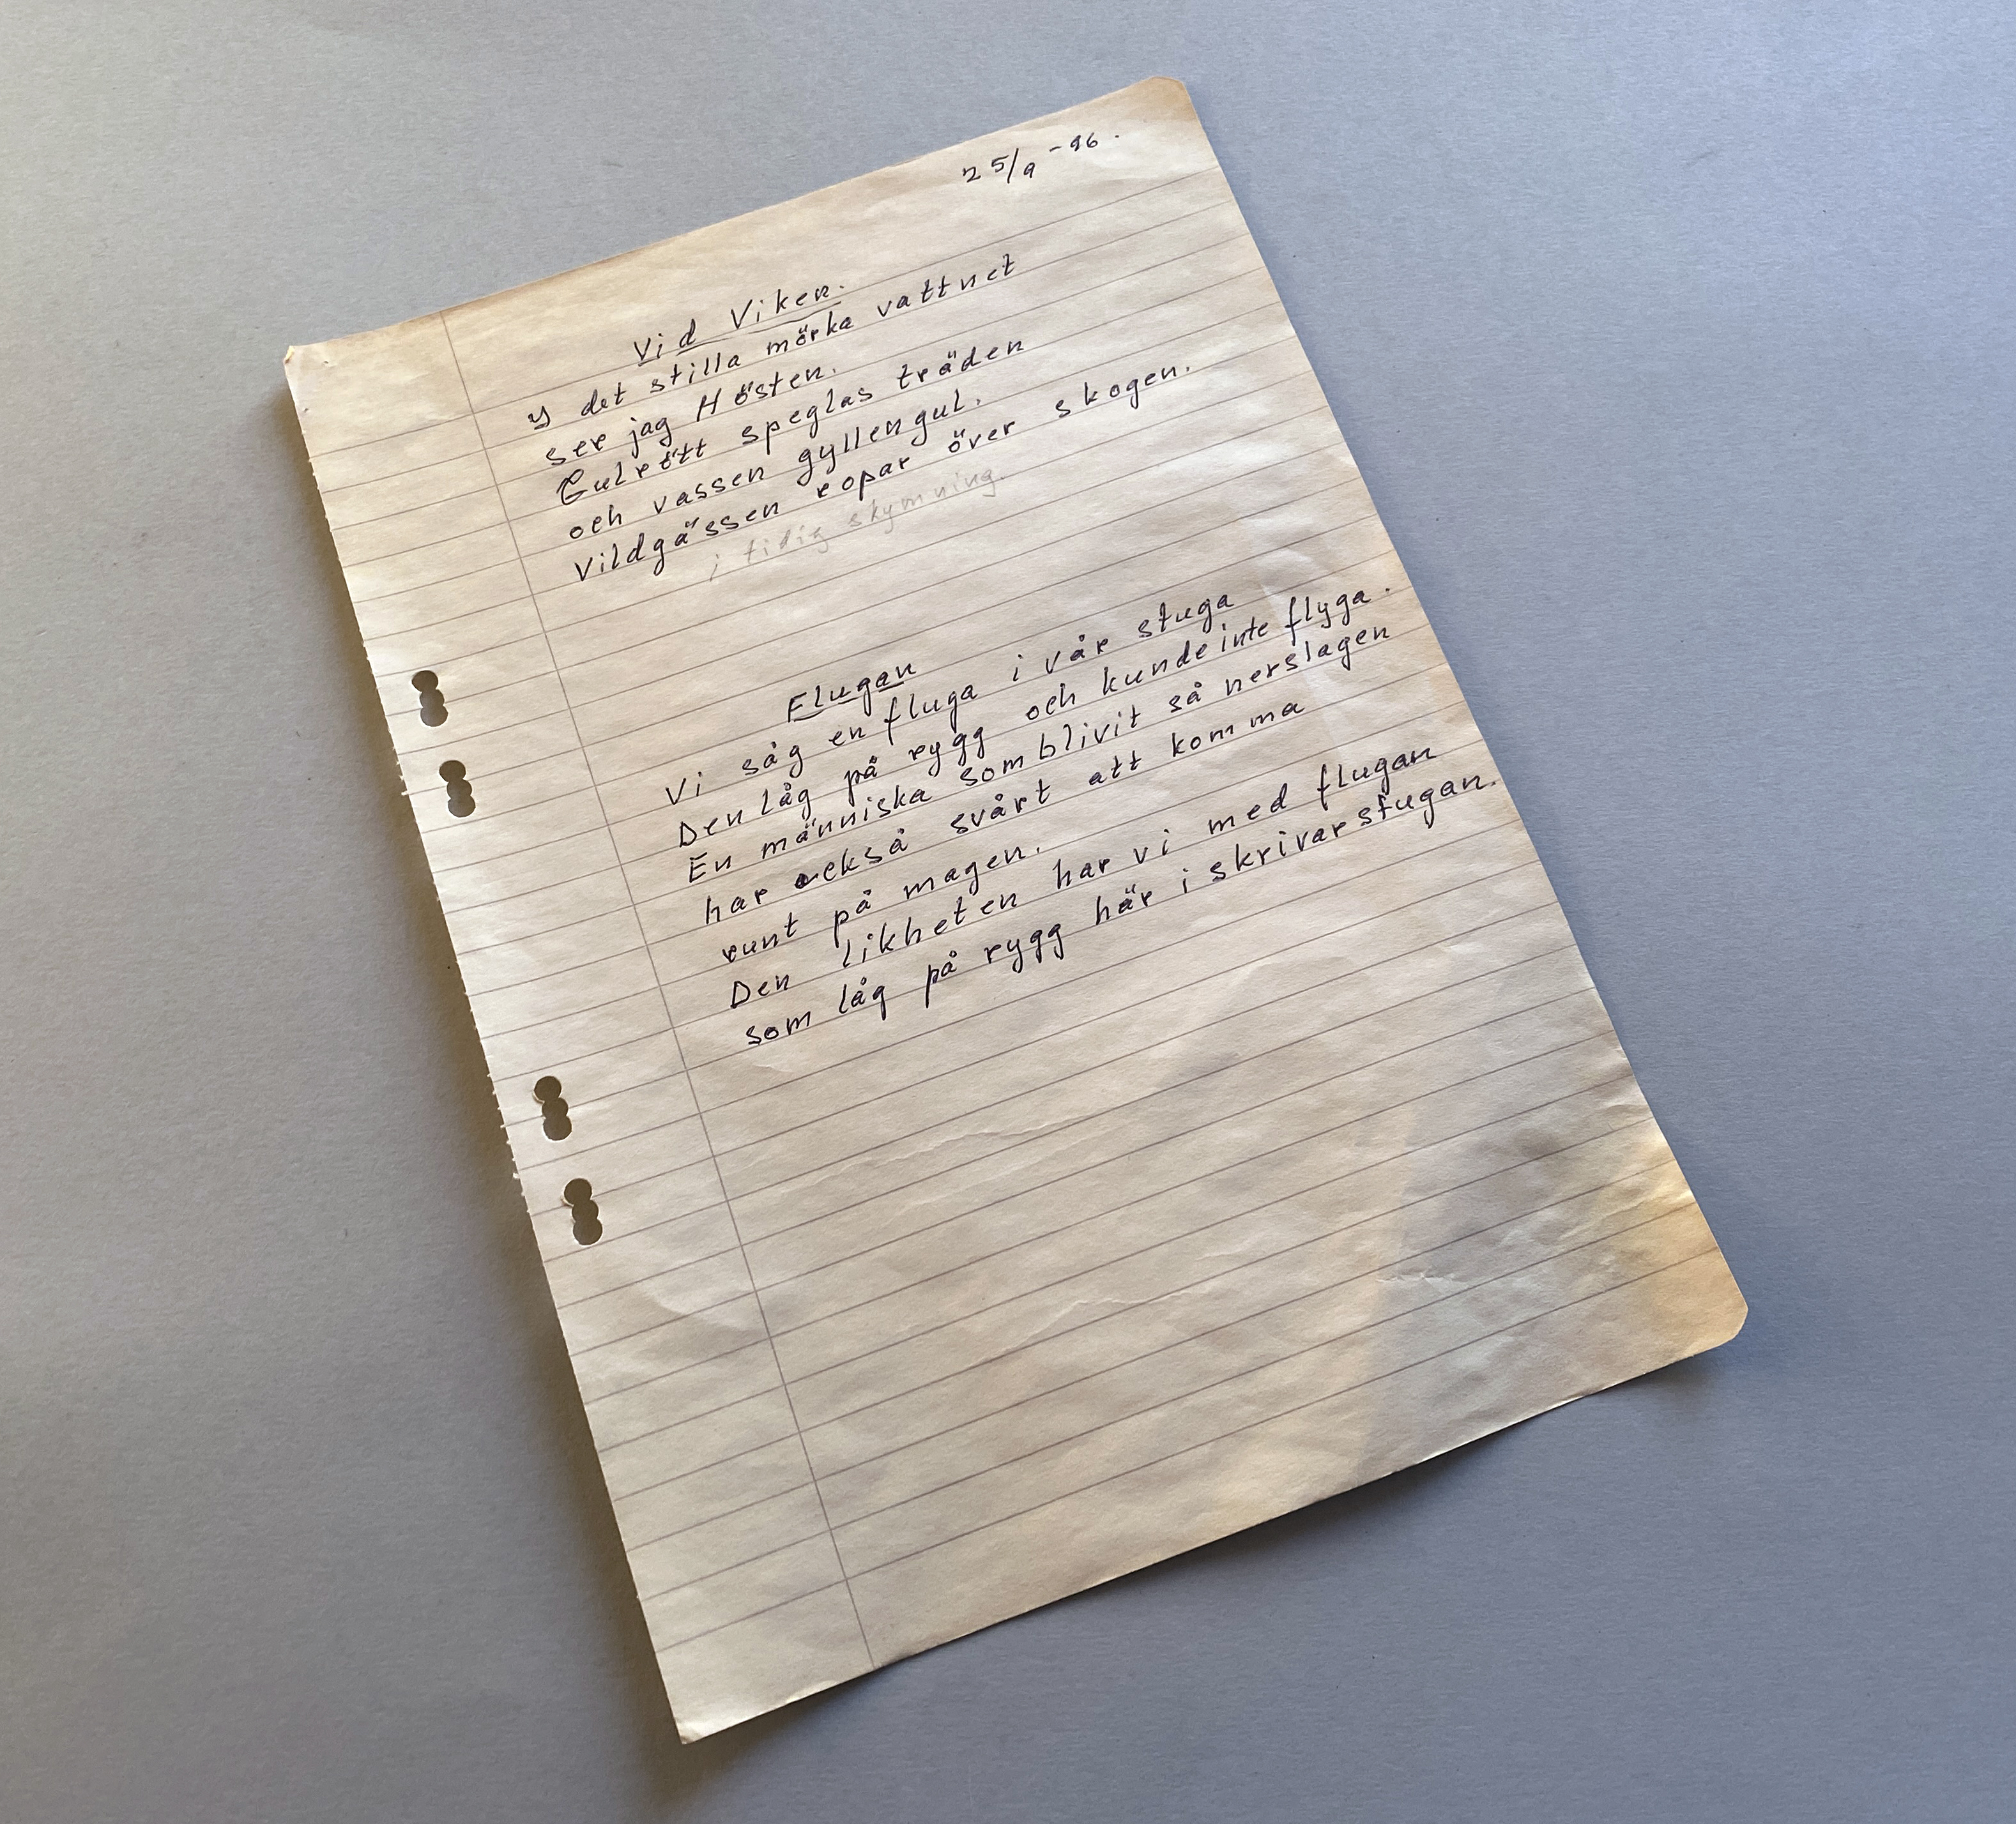 25/9 -96.
Vid Viken.
I det stilla mörka vattnet
ser jag Hösten.
Gulrött speglas träden
och vassen gyllengul.
Vildgässen ropar över skogen.
i tidig skymning.
Flugan
Vi såg en fluga i vår stuga
Den låg på rygg och kunde inte flyga.
En människa som blivit så nerslagen
har också svårt att komma
runt på magen.
Den likheten har vi med flugan
som låg på rygg här i skrivarstugan.